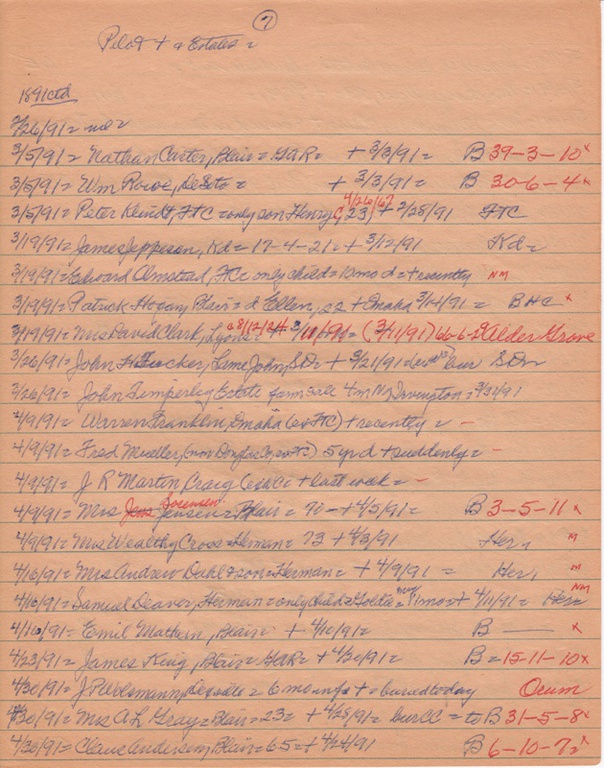 7
Pilot + & Estates =
1891ctd
2/26/91 = no =
3/5/91 = Nathan Carter, Blair = GAR = + 3/3/91 = B 39-3-10 x
3/5/91 = Wm Rowe, DeSoto = + 3/3/91 = B 30-6-4 x
4/26/67
3/5/91 = Peter Kleindt, FTC = only son Henry, C, 23, + 2/28/91 FTC
3/19/91 = James Jeppeson, Kd = 17-4-21 = + 3/12/91 Kd =
3/19/91 = Edward Olmstead, FTC only child = 10 mo d = + recently NM
3/19/91 = Patrick Hogan, Blair = d Ellen, 22 + Omaha 3/14/91 = BHC x
3/19/91 = Mrs David Clark, Lyons = a 8/12/24 + 3/11/91 = (3/11/91) 66-6-29 Alder Grove
3/26/91 = John H Tucher, Lame John, SD = + 3/21/91 bur SD
3/26/91 = John Timperley Estate farm sale 4m N Irvington = 3/31/91
4/9/91 = Warren Franklin, Omaha (ex FTC) + recently = -
4/9/91 = Fred Mueller, (now Douglas Co, ex FTC) 5 yr d + suddenly = -
4/9/91 = J R Martin Craig + last week = -
4/9/91 = Mrs Jens Sorensen Jensen = Blair = 70 - + 4/5/91 = B 3-5-11 x
4/9/91 = Mrs Wealthy Cross = Herman = 73 + 4/3/91 Her, M
4/16/91 = Mrs Andrew Dahl = son = Herman = + 4/9/91 = Her, M
4/16/91 = Samuel Deaver, Herman = only child = Goldie = 1 mo = + 4/11/91 = Her NM
4/16/91 = Emil Mathern, Blair = + 4/10/91 = B — x
4/23/91 = James King, Blair = GAR = + 4/20/91 = B = 15-11-10 x
4/30/91 = J P Wolsmann, DeSoto = 6 mo inf s + = buried today Ocum
4/30/91 = Mrs A L Gray = Blair = 23 = + 4/28/91 = bur CC = to B 31-5-8 x
4/30/91 = Claus Anderson, Blair = 65 = + 4/24/91 B 6-10-7 = x